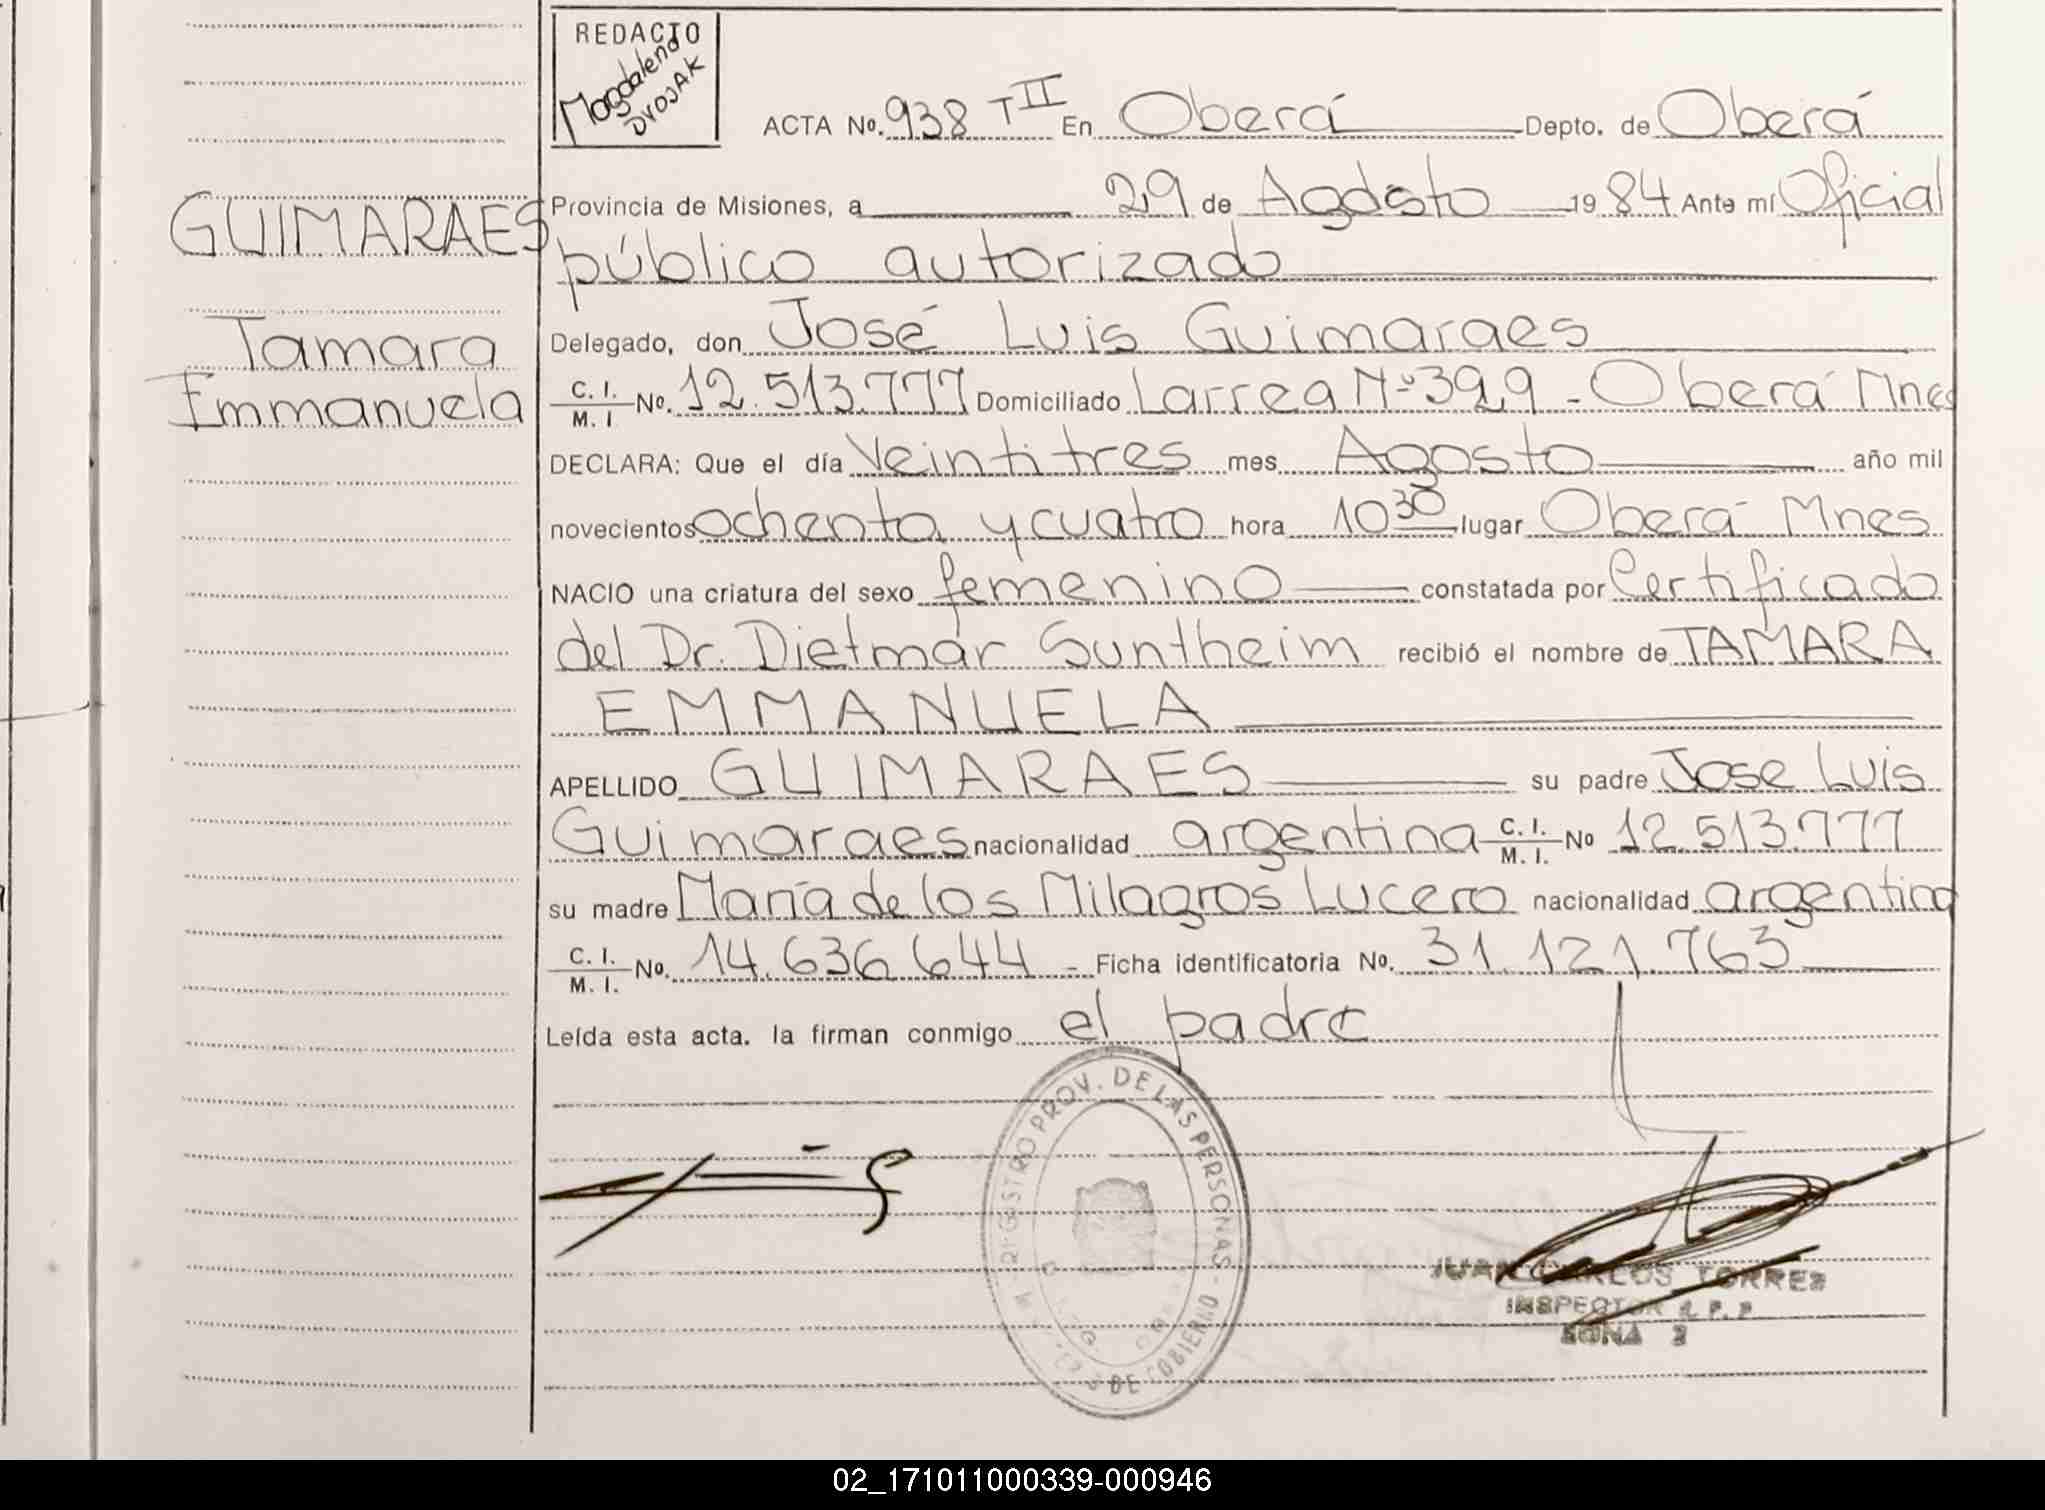 REDACTO
Magdalena
DVOJAK
ACTA No. 938 T II En Oberá Depto. de Oberá
GUIMARAES
Provincia de Misiones, a 29 de Agosto 19 84 Ante mí Oficial
público autorizado
Tamara
Delegado, don José Luis Guimaraes
Emmanuela
C. I. / M. I No. 12.513.777 Domiciliado Larrea Nº 399 - Oberá Mnes
DECLARA: Que el día Veintitres mes Agosto año mil
novecientos ochenta y cuatro hora 10 30 lugar Oberá Mnes
NACIO una criatura del sexo femenino constatada por Certificado
del Dr. Dietmar Suntheim recibió el nombre de TAMARA
EMMANUELA
APELLIDO GUIMARAES su padre Jose Luis
Guimaraes nacionalidad argentina C. I. / M. I. No 12.513.777
su madre María de los Milagros Lucero nacionalidad argentina
C. I. / M. I. No. 14.636.644 - Ficha identificatoria No. 31.121.763
Leída esta acta. la firman conmigo el padre
REGISTRO PROV. DE LAS PERSONAS - DE GOBIERNO
JUAN CARLOS TORRES
INSPECTOR
ZONA 2
02_171011000339-000946